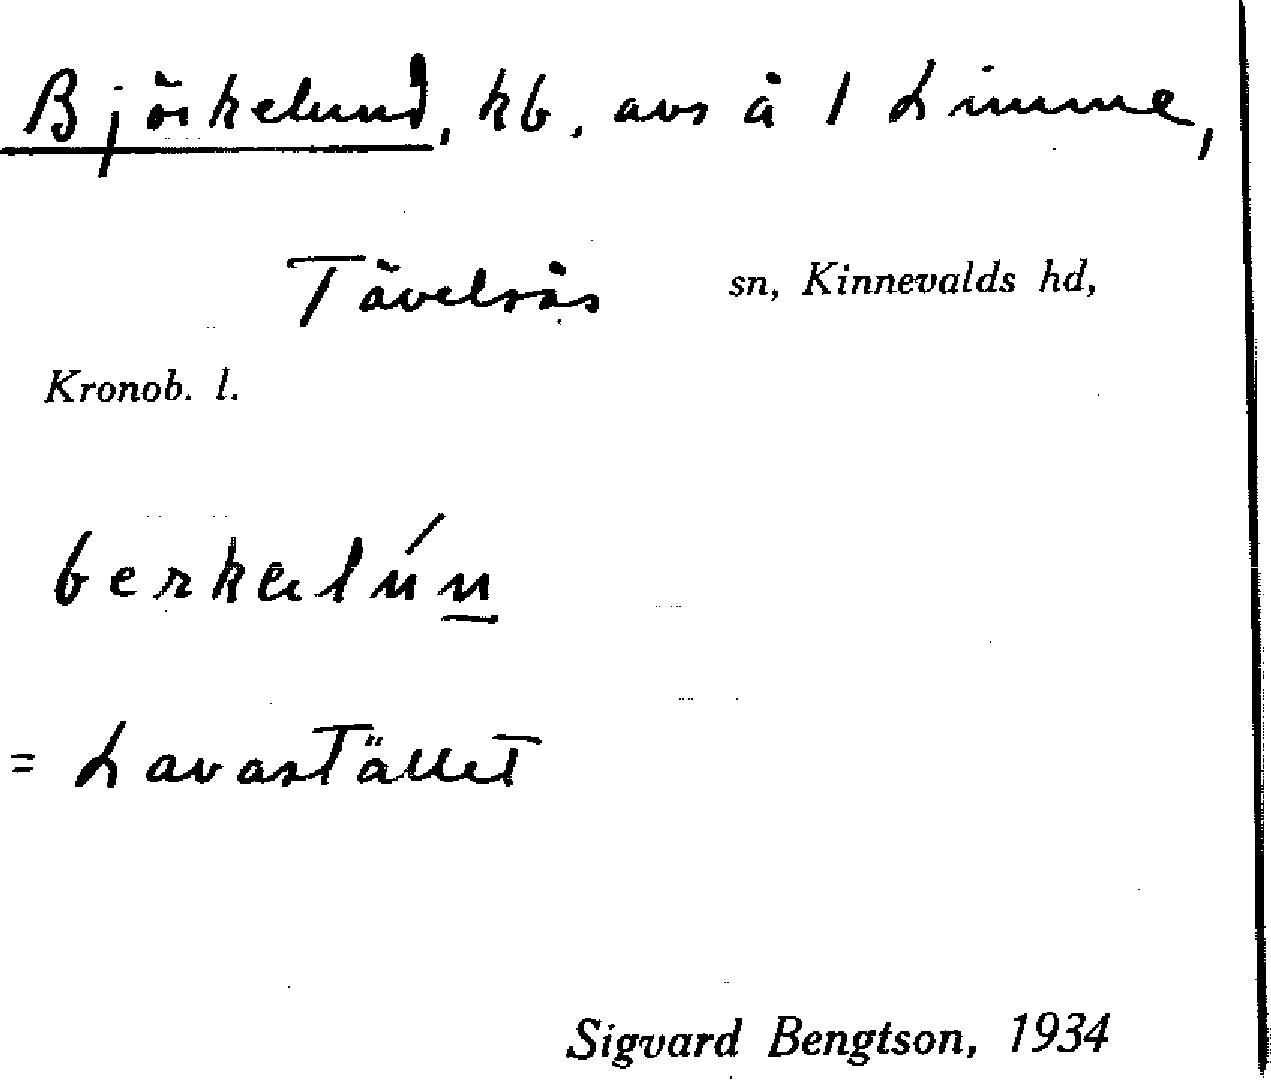 Björkelund, hb. avs å 1 Limme,
Tävelsås sn, Kinnevalds hd,
Kronob. l.
berkalún
= Lavastället
Sigvard Bengtson, 1934